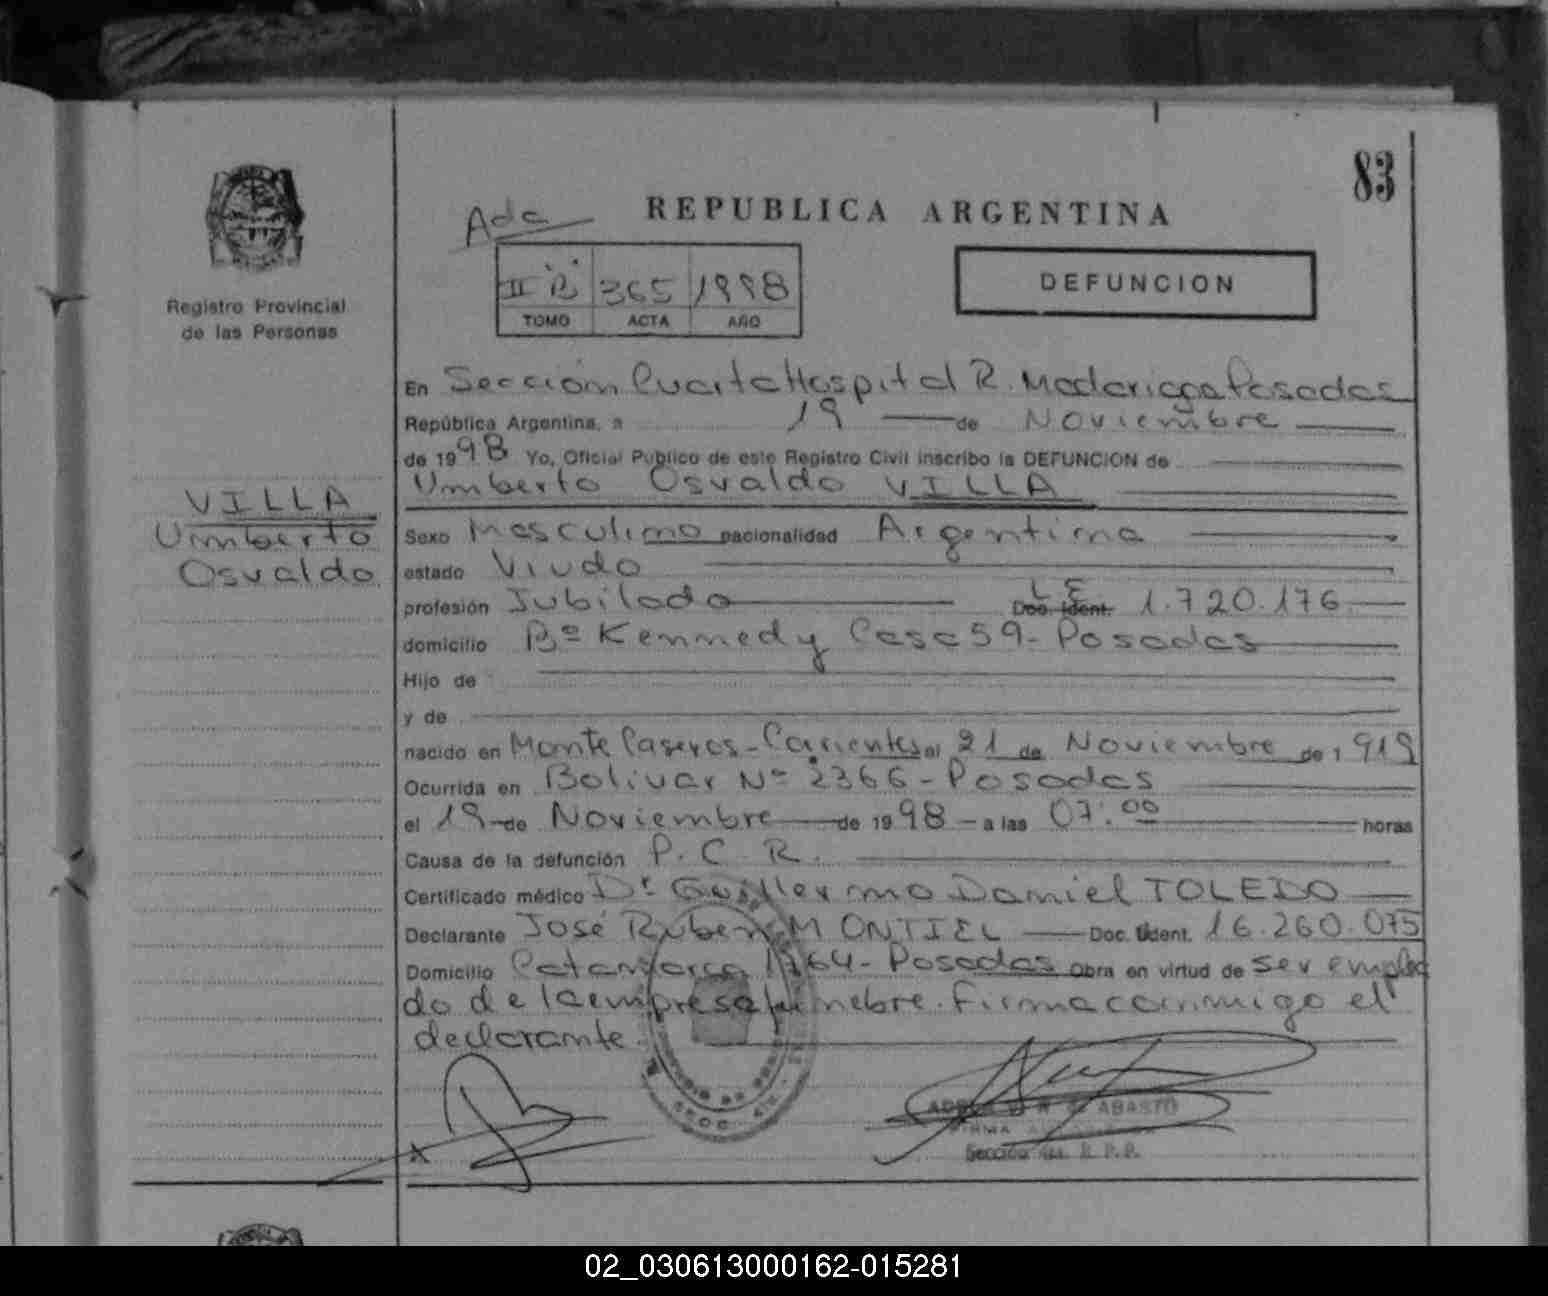 83
REPUBLICA ARGENTINA
Registro Provincial
de las Personas
II "B" 365 1998
TOMO ACTA AÑO
DEFUNCION
VILLA
Umberto
Osvaldo
En Sección Cuarta Hospital R. Madariaga Posadas
República Argentina, a 19 de Noviembre
de 1998 Yo, Oficial Publico de este Registro Civil inscribo la DEFUNCION de
Umberto Osvaldo VILLA
Sexo Masculino nacionalidad Argentina
estado Viudo
profesión Jubilado Doc. Ident. L E 1.720.176
domicilio Bº Kennedy Casa 59 - Posadas
Hijo de
y de
nacido en Monte Caseros - Corrientes el 21 de Noviembre de 1919
Ocurrida en Bolivar Nº 2366 - Posadas
el 19 de Noviembre de 1998 - a las 07:00 horas
Causa de la defunción P. C. R.
Certificado médico Dr Guillermo Daniel TOLEDO
Declarante José Ruben MONTIEL Doc. Ident. 16.260.075
Domicilio Catamarca 1764 - Posadas Obra en virtud de ser emplea
do de la empresa funebre. Firma conmigo el
declarante.
X
ABASTO
FIRMA
Sección 4ta. R. P. P.
02_030613000162-015281